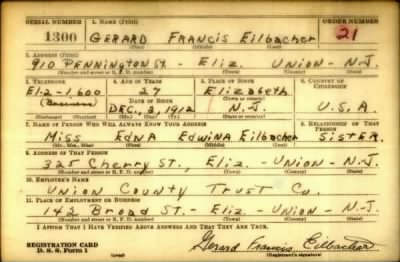 SERIAL NUMBER 1. NAME (Print) ORDER NUMBER
1300 GERARD FRANCIS Eilbacher 21
(First) (Middle) (Last)
2. ADDRESS (Print)
910 PENNINGTON St. - Eliz. UNION - N.J.
(Number and street or R. F. D. number) (Town) (County) (State)
3. TELEPHONE 4. AGE IN YEARS 5. PLACE OF BIRTH 6. COUNTRY OF CITIZENSHIP
El-2-1600 27 Elizabeth
(Business) DATE OF BIRTH (Town or county)
DEC. 2, 1912 N.J. U.S.A.
(Exchange) (Number) (Mo.) (Day) (Yr.) (State or country)
7. NAME OF PERSON WHO WILL ALWAYS KNOW YOUR ADDRESS 8. RELATIONSHIP OF THAT PERSON
Miss Edna Edwina Eilbacher SISTER.
(Mr., Mrs., Miss) (First) (Middle) (Last)
9. ADDRESS OF THAT PERSON
325 Cherry St., Eliz. - Union - N.J.
(Number and street or R. F. D. number) (Town) (County) (State)
10. EMPLOYER'S NAME
Union County Trust Co.
11. PLACE OF EMPLOYMENT OR BUSINESS
142 Broad St. - Eliz - Union - N.J.
(Number and street or R. F. D. number) (Town) (County) (State)
I AFFIRM THAT I HAVE VERIFIED ABOVE ANSWERS AND THAT THEY ARE TRUE.
REGISTRATION CARD
D. S. S. Form 1 Gerard Francis Eilbacher
(Registrant's signature)